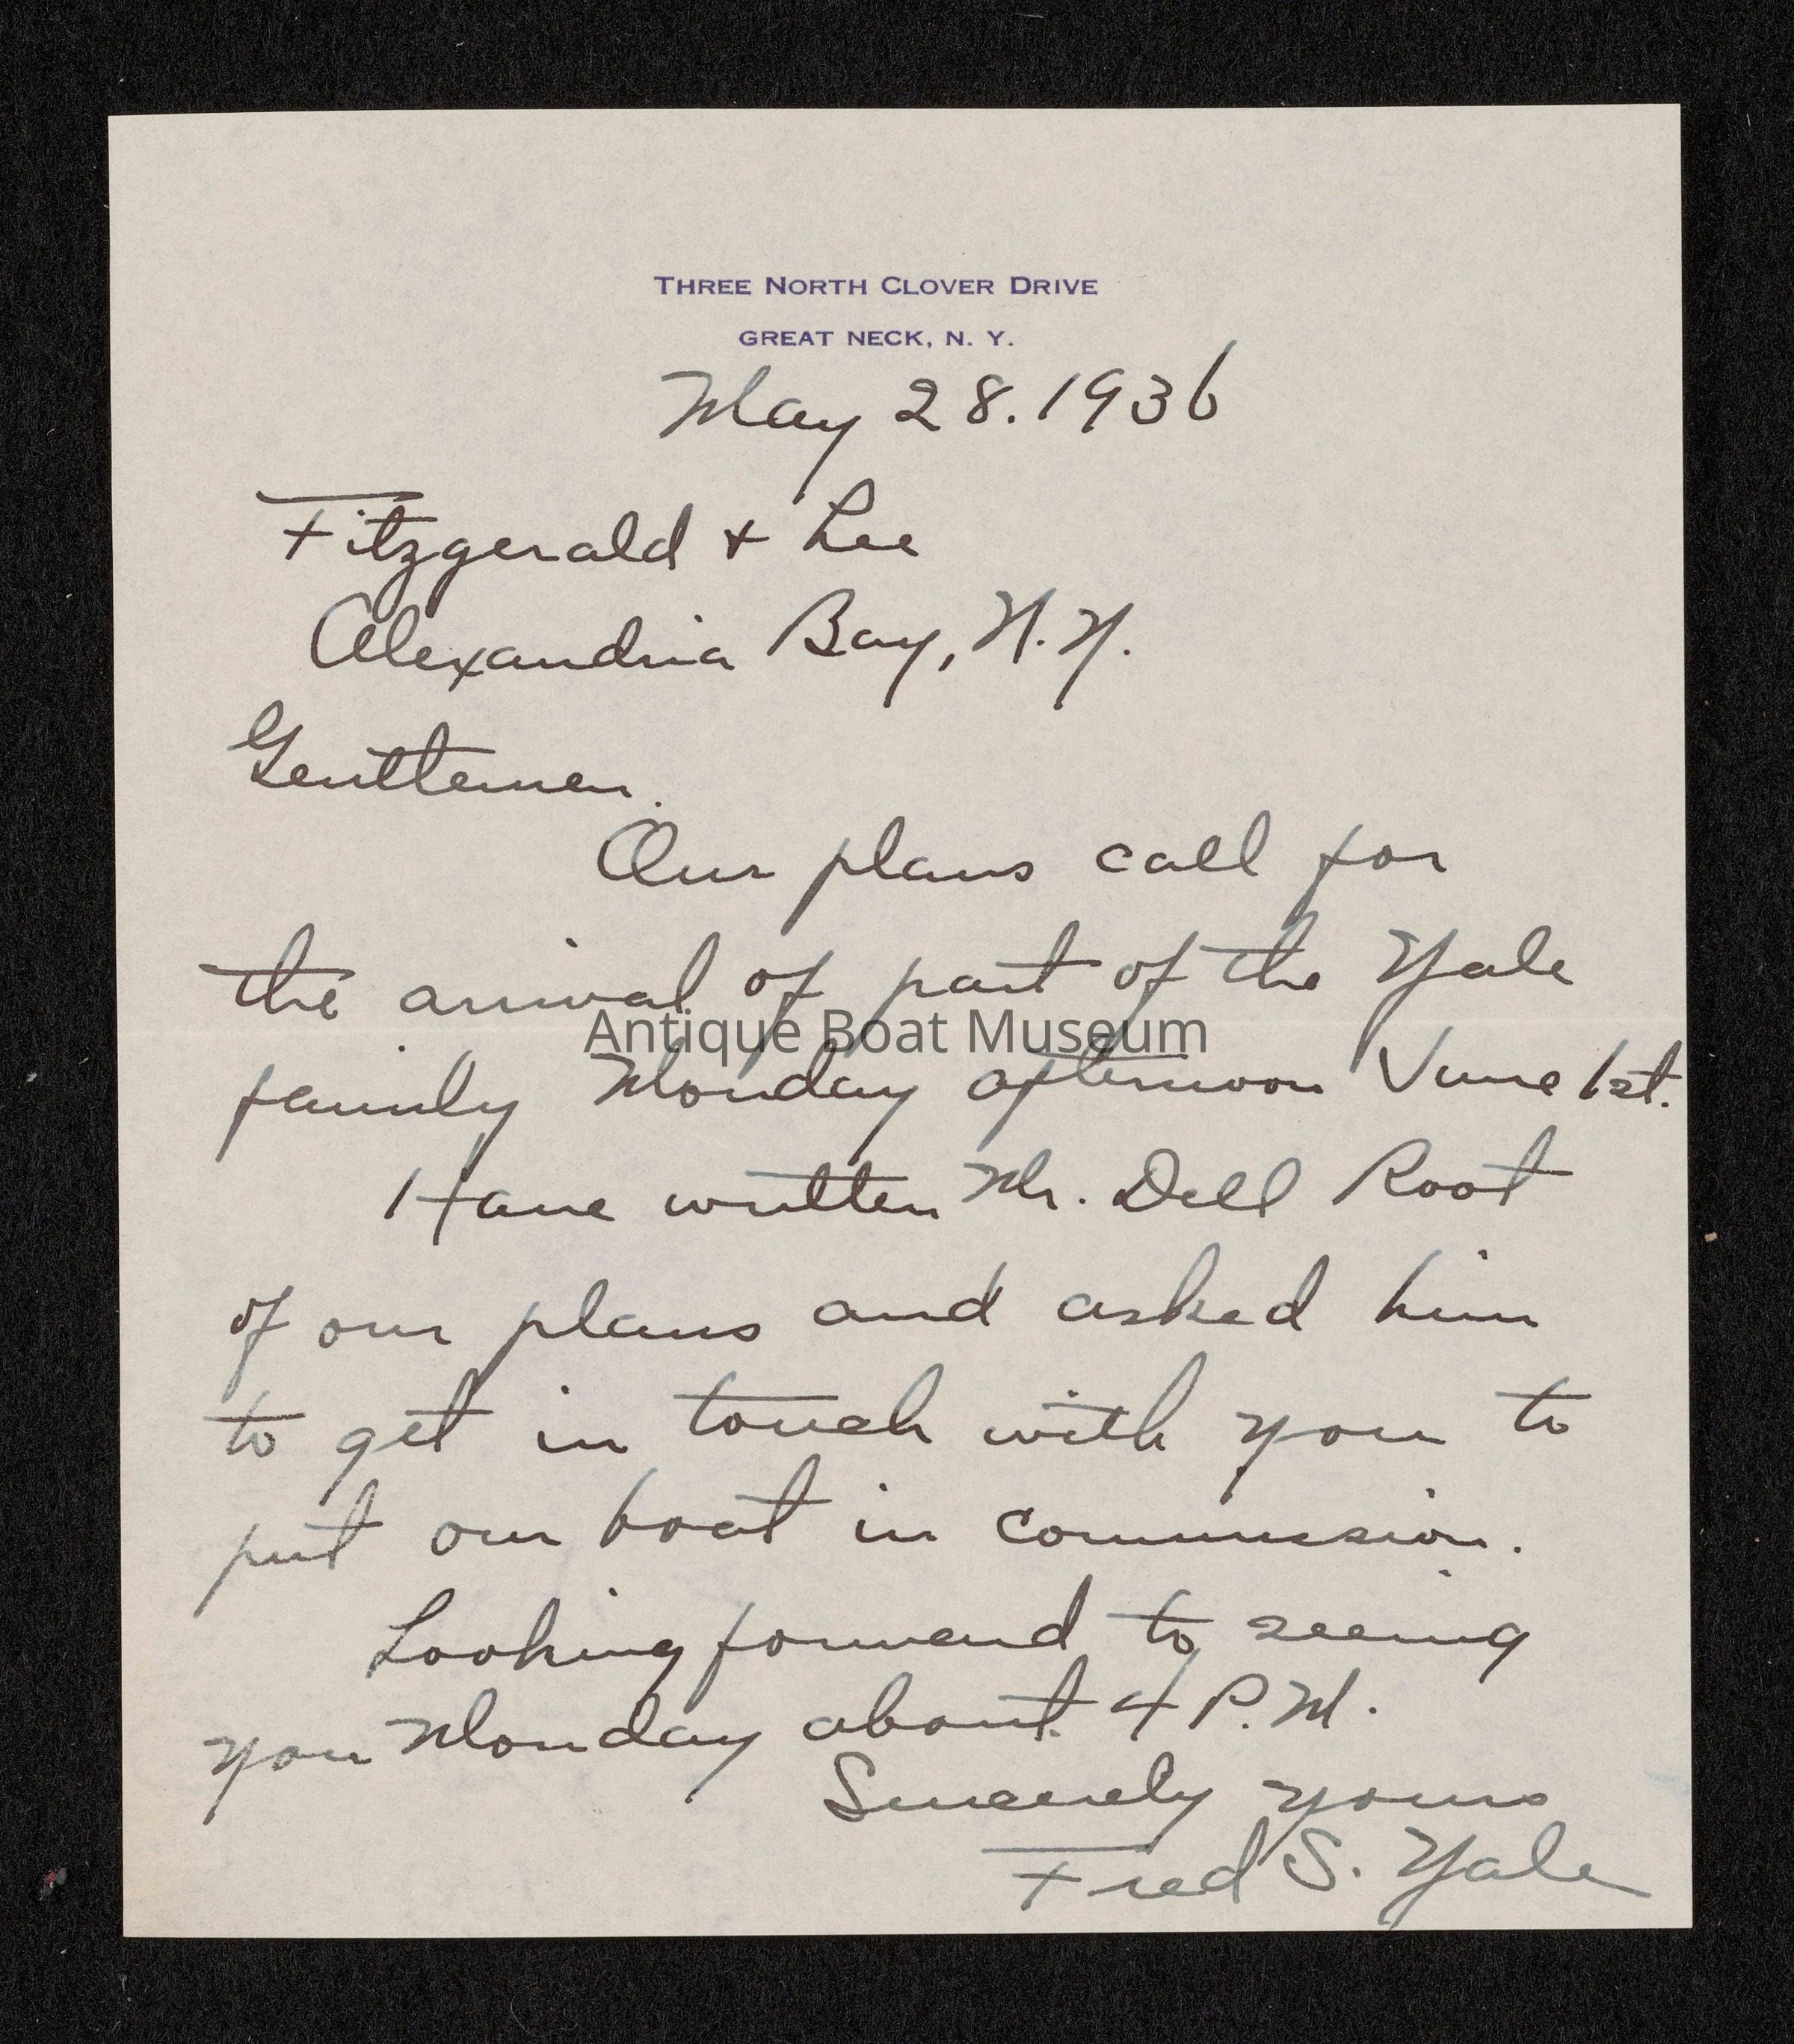 THREE NORTH CLOVER DRIVE
GREAT NECK, N. Y.
May 28. 1936
Fitzgerald + Lee
Alexandria Bay, N.Y.
Gentlemen.
Our plans call for
the arrival of part of the Yale
Antique Boat Museum
family Monday afternoon June 1st.
Have written Mr. Dell Root
of our plans and asked him
to get in touch with you to
put our boat in commission.
Looking forward to seeing
you Monday about 4 P.M.
Sincerely yours
Fred S. Yale